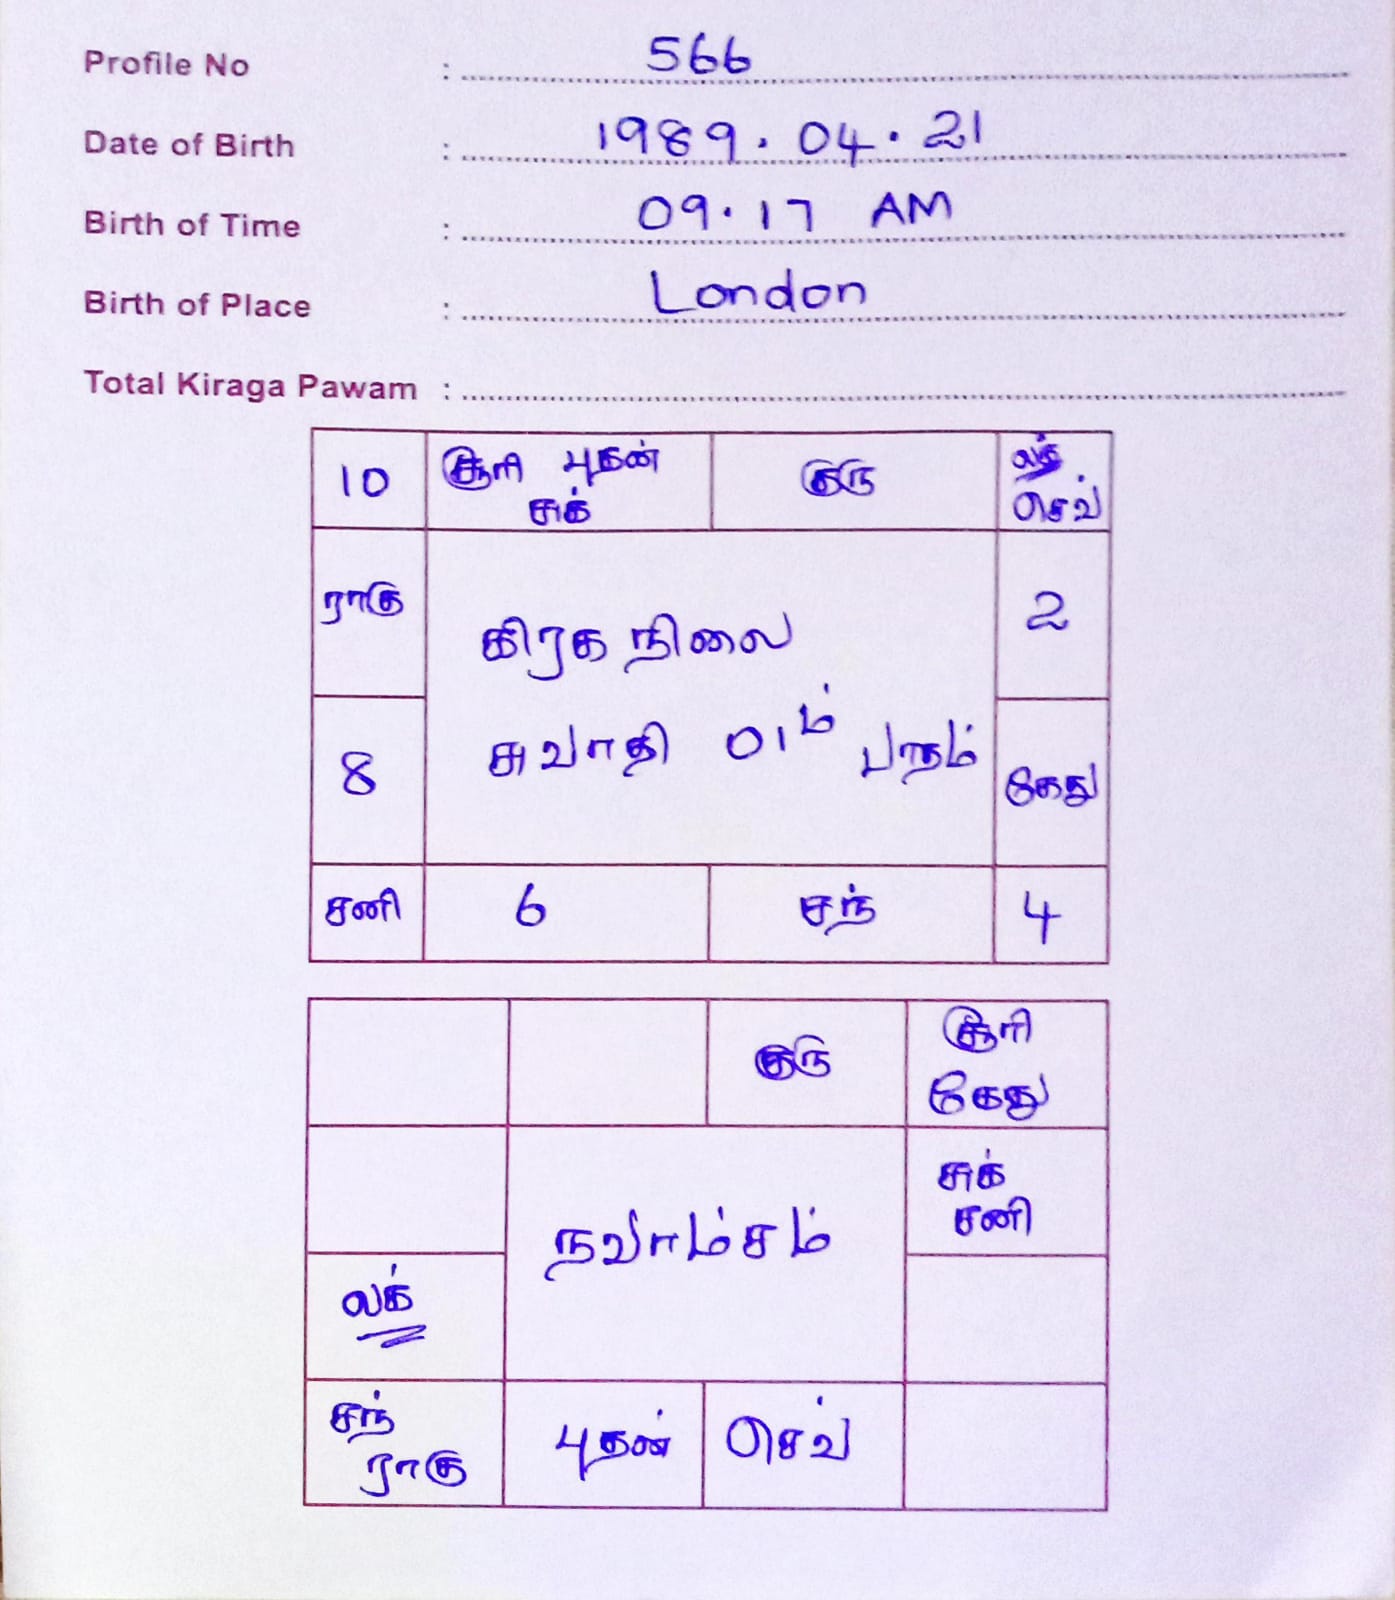 Profile No : 566
Date of Birth : 1989.04.21
Birth of Time : 09.17 AM
Birth of Place : London
Total Kiraga Pawam :
10 சூரி புதன் குரு லக்
சுக் செவ்
ராகு 2
கிரக நிலை
சுவாதி 01ம் பாதம்
8 கேது
சனி 6 சந் 4
குரு சூரி
கேது
சுக்
சனி
நவாம்சம்
லக்
சந் புதன் செவ்
ராகு